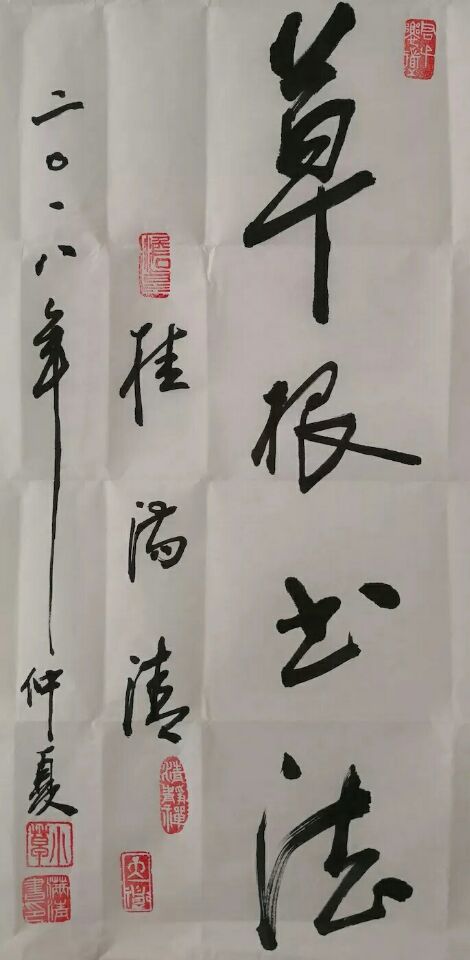 草根书法
桂满清
二〇一八年仲夏